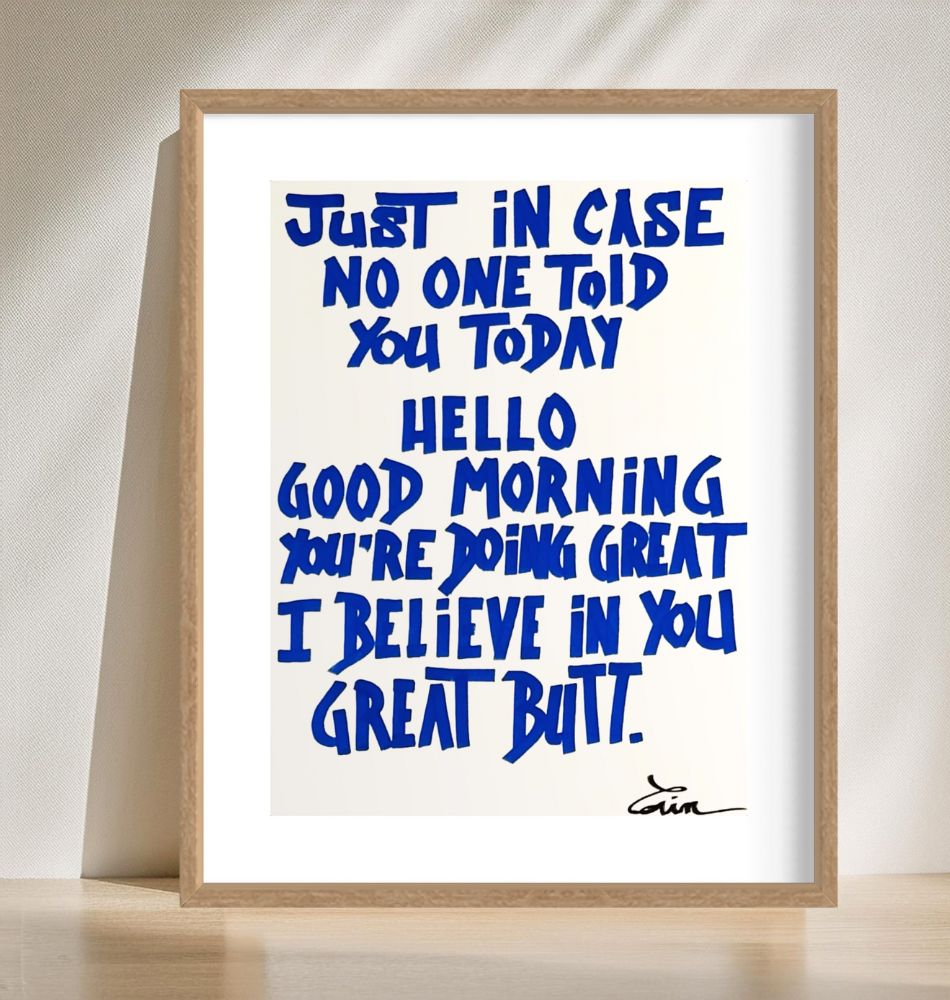 JUST iN CASE
NO ONE TOlD
YOU TODAY
HELLO
GOOD MORNiNG
YOU'RE DOiNG GREAT
I BELiEVE iN YOU
GREAT BUTT.